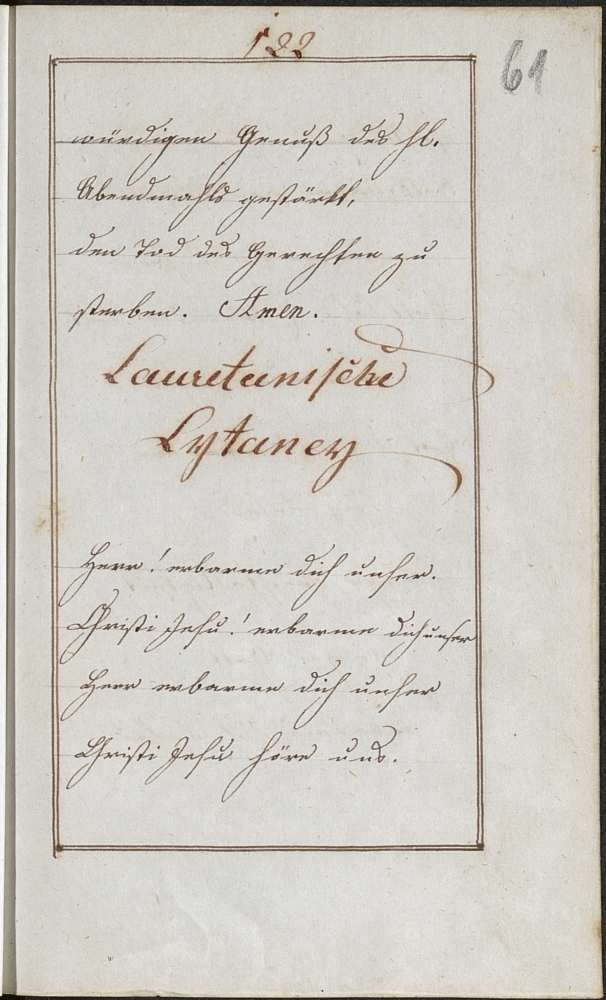 122
61
würdigen Genuß des hl.
Abendmahls gestärkt,
den Tod des Gerechten zu
sterben. Amen.
Lauretanische
Lytaney
Herr! erbarme dich unser.
Christi Jesu! erbarme dich unser
Herr erbarme dich unser
Christi Jesu höre uns.